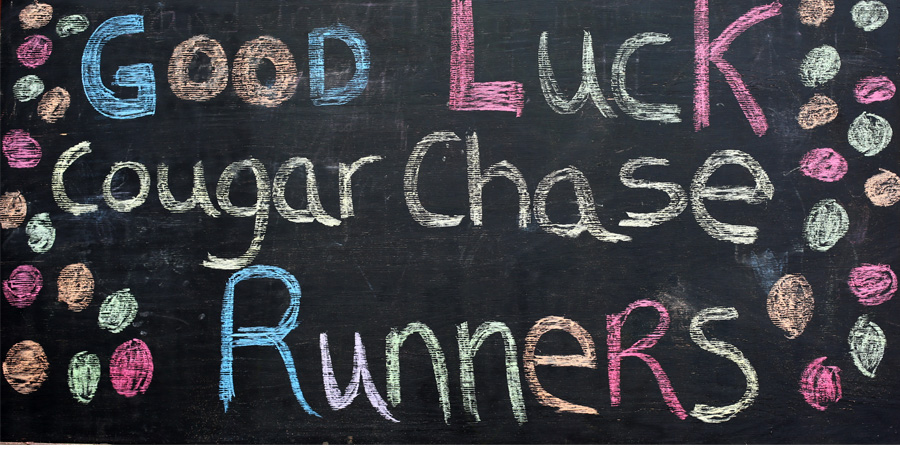 Good Luck
Cougar Chase
Runners